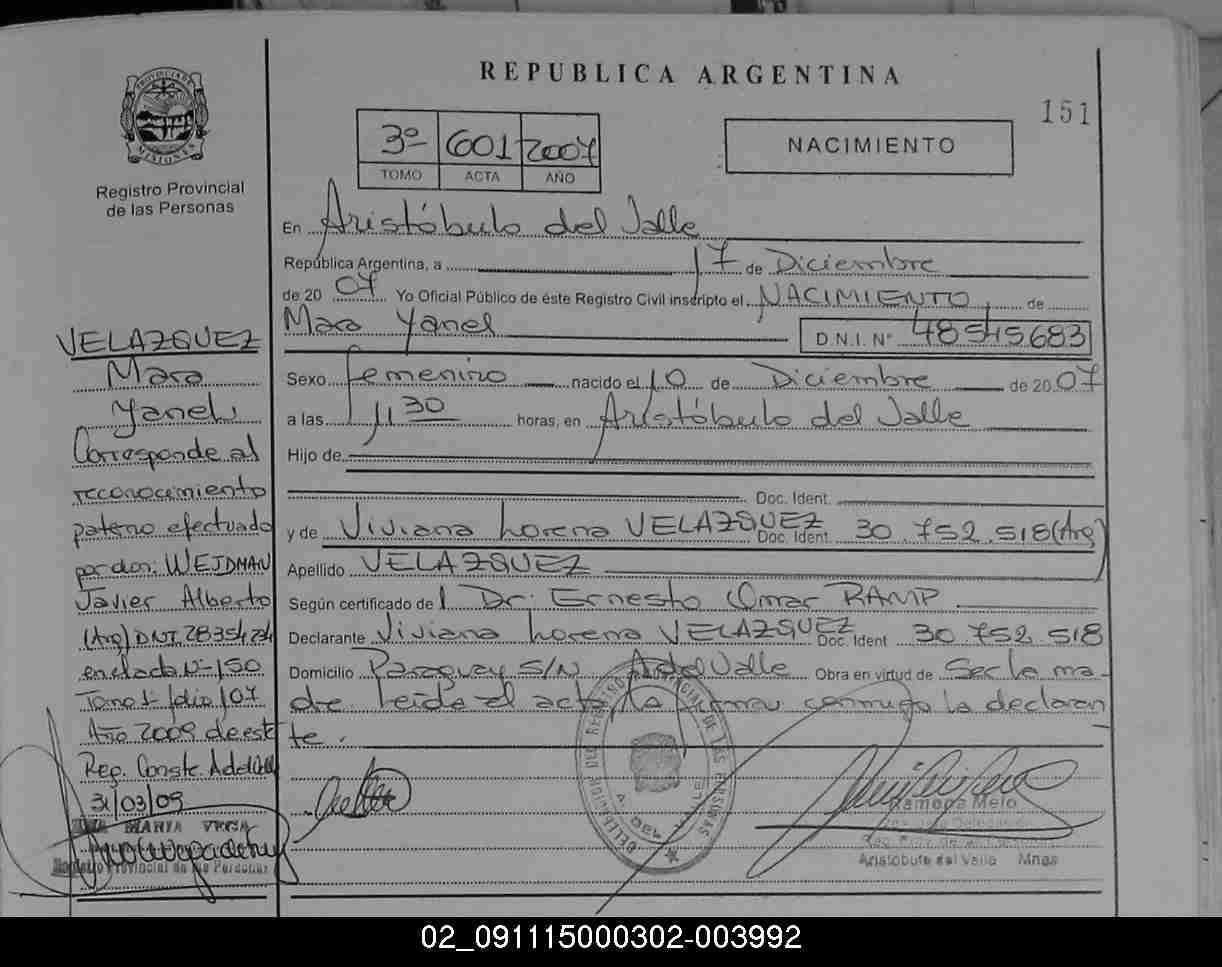 REPUBLICA ARGENTINA
151
PROVINCIA DE MISIONES
Registro Provincial
de las Personas
3º 601 2007
TOMO ACTA AÑO
NACIMIENTO
En Aristóbulo del Valle
República Argentina, a 17 de Diciembre
de 20 07 Yo Oficial Público de éste Registro Civil inscripto el NACIMIENTO de
Mara Yanel
D.N.I. N° 48545683
Sexo femenino nacido el 10 de Diciembre de 20 07
a las 11 30 horas, en Aristóbulo del Valle
Hijo de
Doc. Ident.
y de Viviana Lorena VELAZQUEZ Doc. Ident. 30.752.518 (Arg)
Apellido VELAZQUEZ
Según certificado del Dr. Ernesto Omar RAMP
Declarante Viviana Lorena VELAZQUEZ Doc. Ident 30.752 518
Domicilio Paraguay S/N A del Valle Obra en virtud de Ser la ma-
dre. Leída el acta, la firma conmigo la declaran
te.
VELAZQUEZ
Mara
Yanel
Corresponde al
reconocimiento
paterno efectuado
por don: WEIDMAN
Javier Alberto
(Arg) DNI
en acta Nº 150
Tomo 1º folio 107
Año 2009 de est
Reg. Conste. A del Valle
31/03/09
MARIA VEGA
Registro Provincial de las Personas
DELEGACION DEL REGISTRO PROVINCIAL DE LAS PERSONAS
A. DEL VALLE
Ramona Melo
Aristobulo del Valle Mnes
02_091115000302-003992